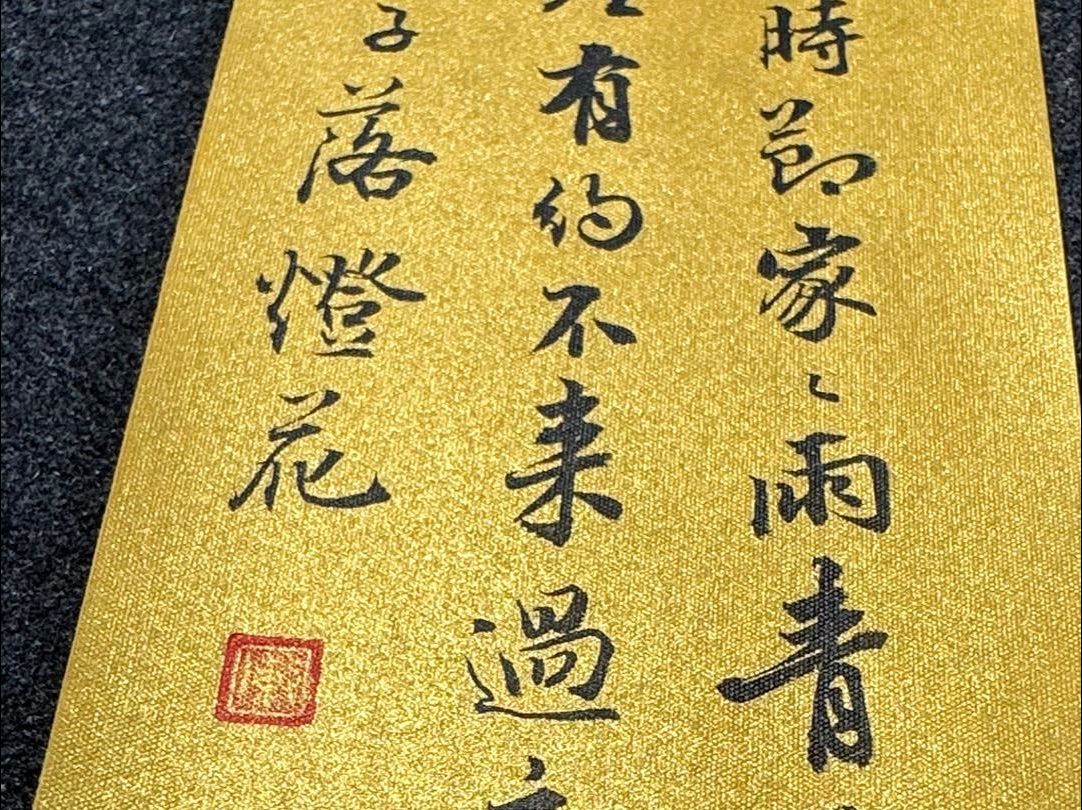 時節家〻雨青
有約不来過
子落燈花